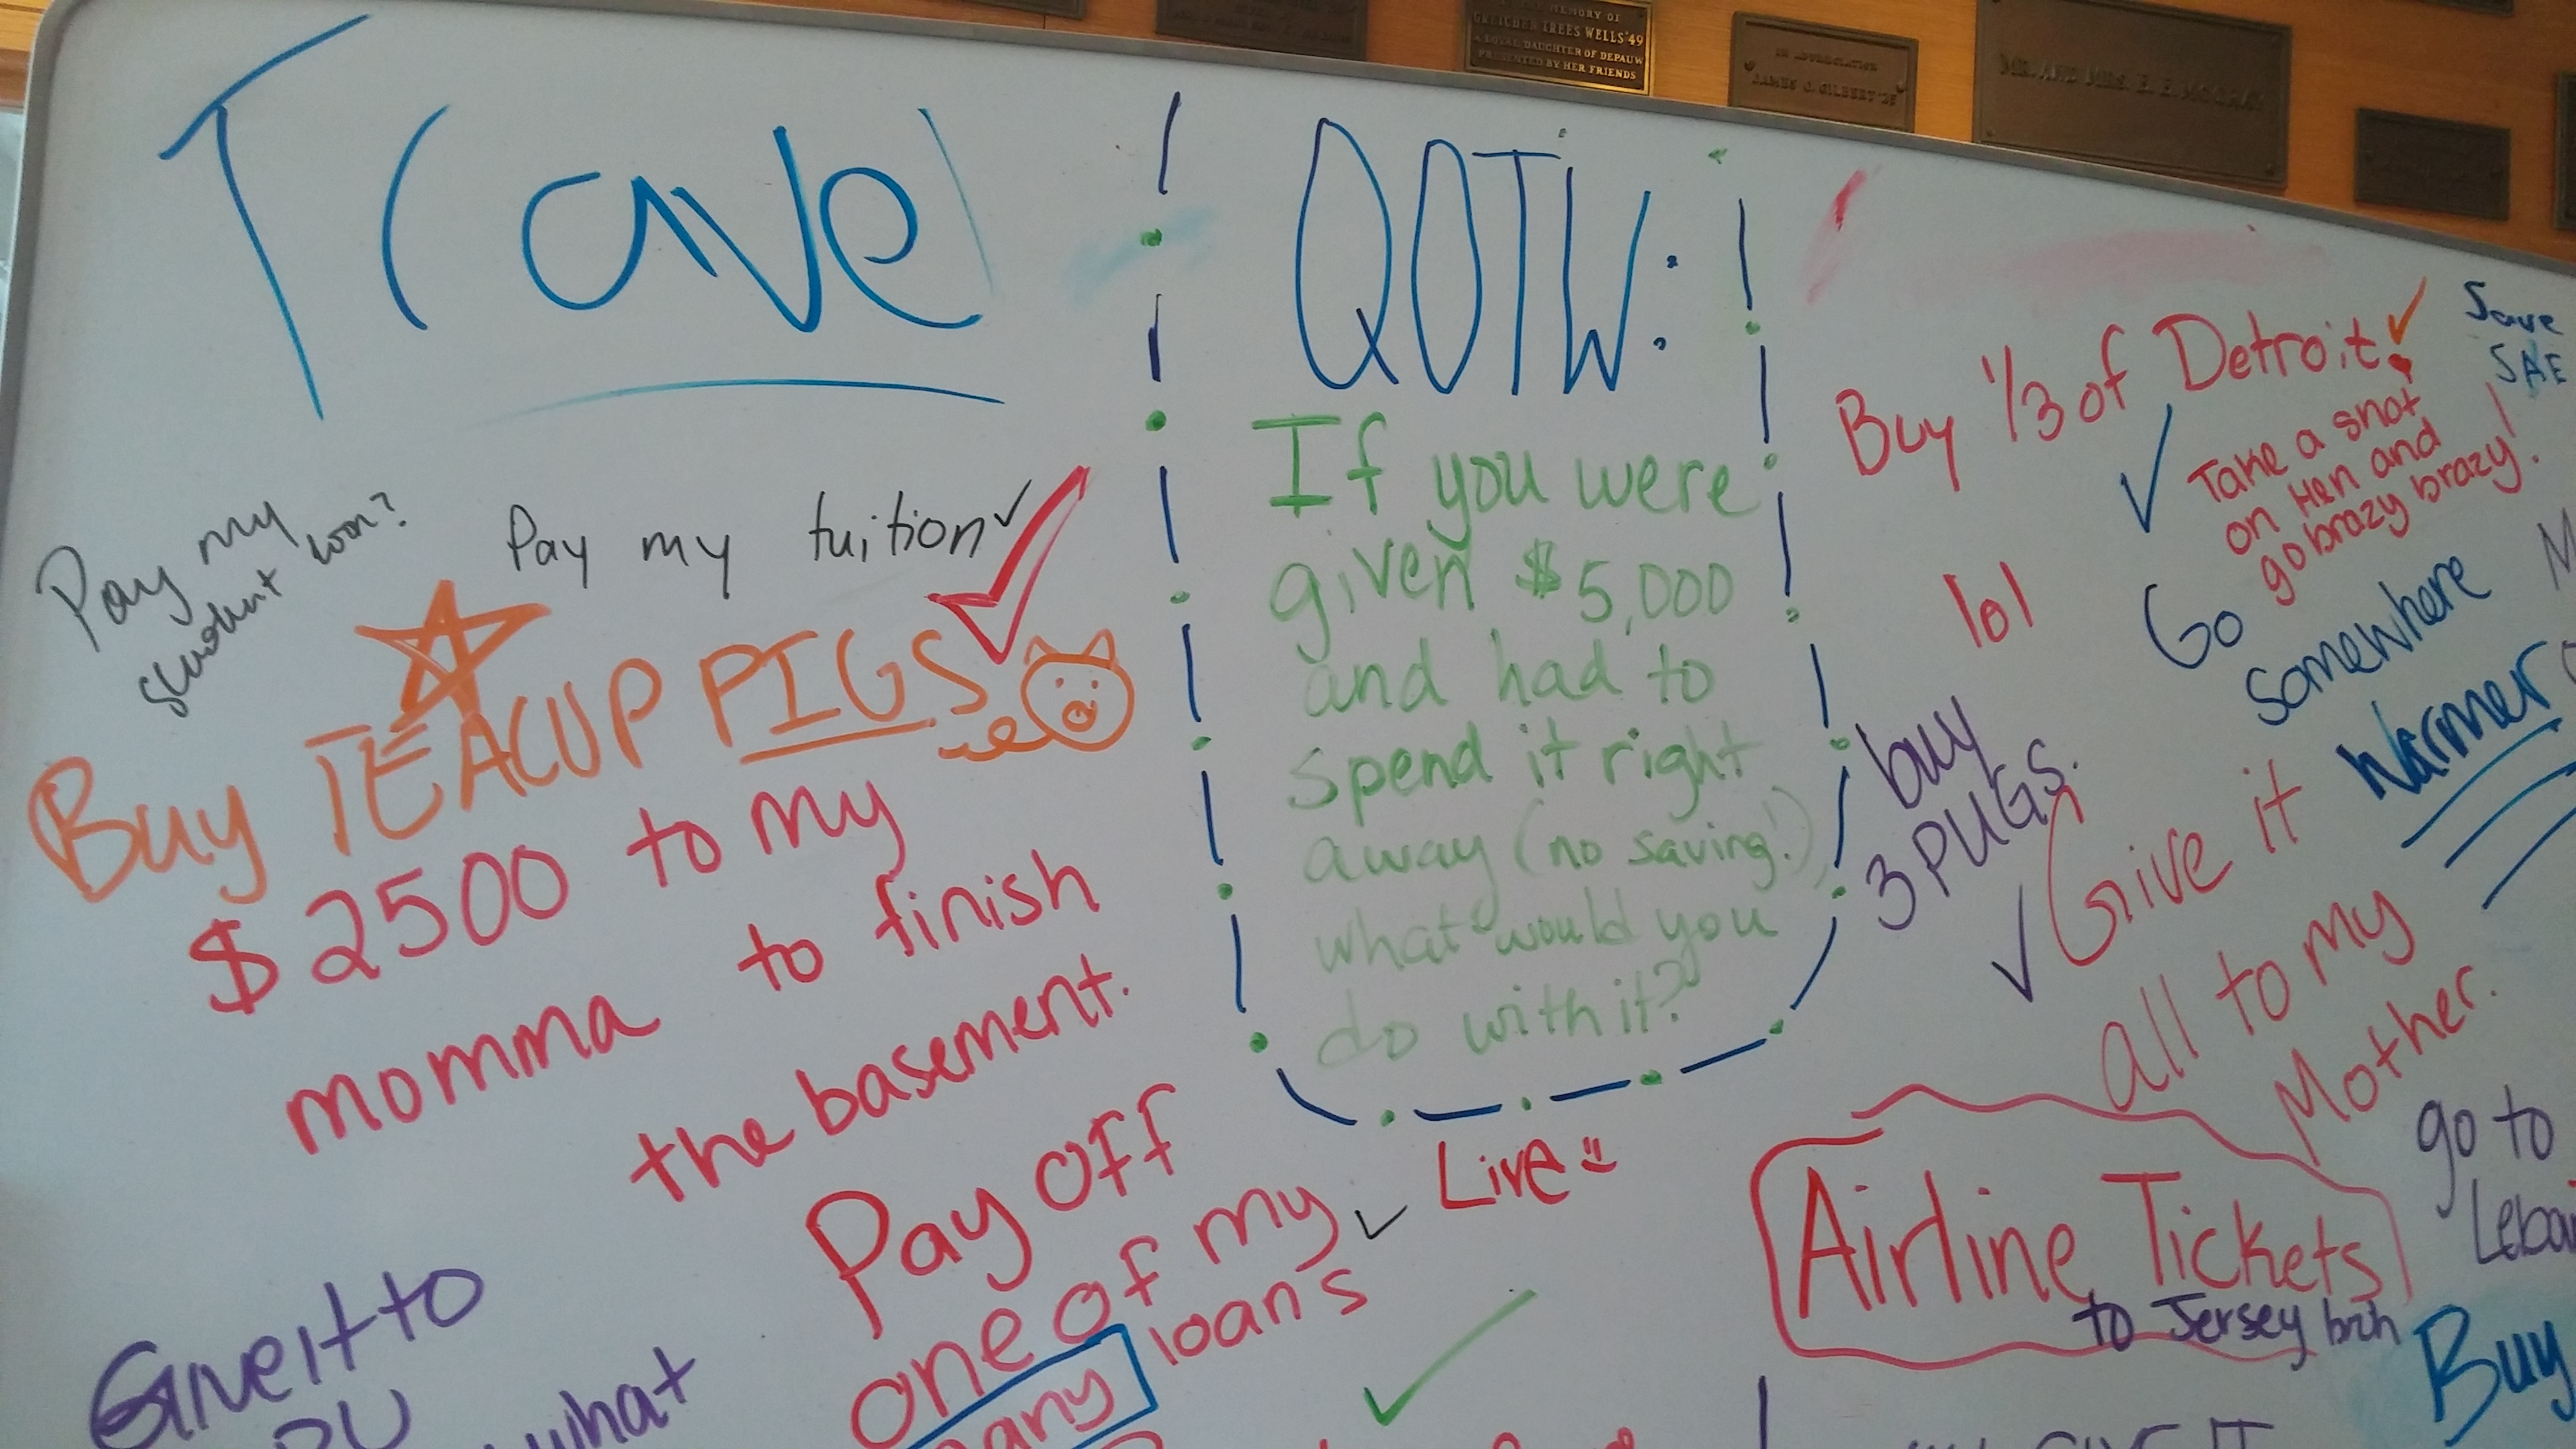 MEMORY OF
GRETCHEN TREES WELLS '49
A LOYAL DAUGHTER OF DEPAUW
PRESENTED BY HER FRIENDS
IN APPRECIATION
JAMES O. GILBERT '25
MR. AND MRS. E. E. MCCRAY
Travel
Pay my
student loan?
Pay my tuition
Buy TEACUP PIGS
$2500 to my
momma to finish
the basement.
Pay off
one of my
many
loans
Give it to
what
QOTW:
If you were
given $5,000
and had to
spend it right
away (no saving!)
what would you
do with it?
Live
Buy 1/3 of Detroit!
Save
SAE
Take a shot
on Hen and
go brazy brazy!
lol
Go
Somewhere
Warmer
buy
3 PUGS.
Give it
all to my
Mother.
Airline Tickets
to Jersey
go to
Buy